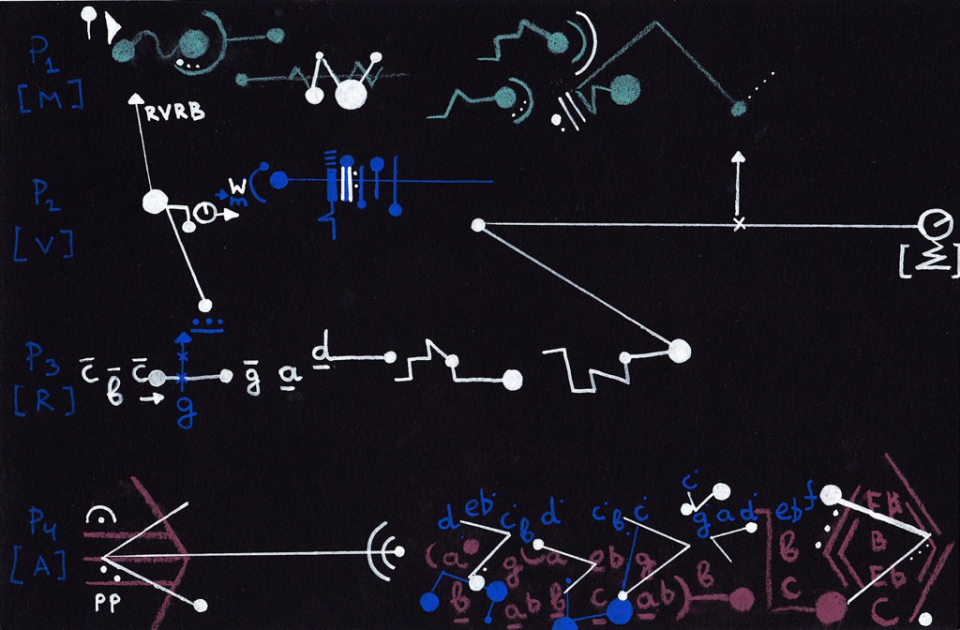 P1
[M]
RVRB
P2
[V]
W
m
[M]
P3
[R]
c̄ b̄ c̄ ḡ a̲ d̲
g̲
P4
[A]
pp
d eb c b d c b c g a d eb f
c
(a g c a eb g
b̲ ab b̲ c̲ ab) b
b
c
Eb
B
Eb
C